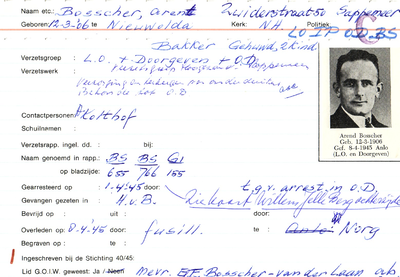 Naam etc.: Bosscher, Arent Zuiderstraat 50 Sappemeer
Geboren: 12-3-'06 te Nieuwolda Kerk: N.H. Politiek
LO IP O.D. BS
Bakker Gehuwd, 2 kind
Verzetsgroep : L.O. + Doorgeven + O.D.
Verzetswerk :
O.D
Contactpersonen: Kolthof
Schuilnaam :
Verzetsrapp. ingel. dd. : bij:
Naam genoemd in rapp.: BS BS G1
op bladzijde: 655 766 155
Arend Bosscher
Geb. 12-3-1906
Gef. 8-4-1945 Anlo
(L.O. en Doorgeven)
Gearresteerd op : 1.4.45 door: t.g.v. arrest. in O.D.
Gevangen gezeten in : H.v.B. Ziekaart Willem Jelle Berg
Bevrijd op : uit : door:
Overleden op: 8.4.45 door: fusill. te: Anlo Norg
Begraven op : te :
Ingeschreven bij de Stichting 40/45:
Lid G.O.I.W. geweest: Ja / Neen mevr. Bosscher-van der Laan